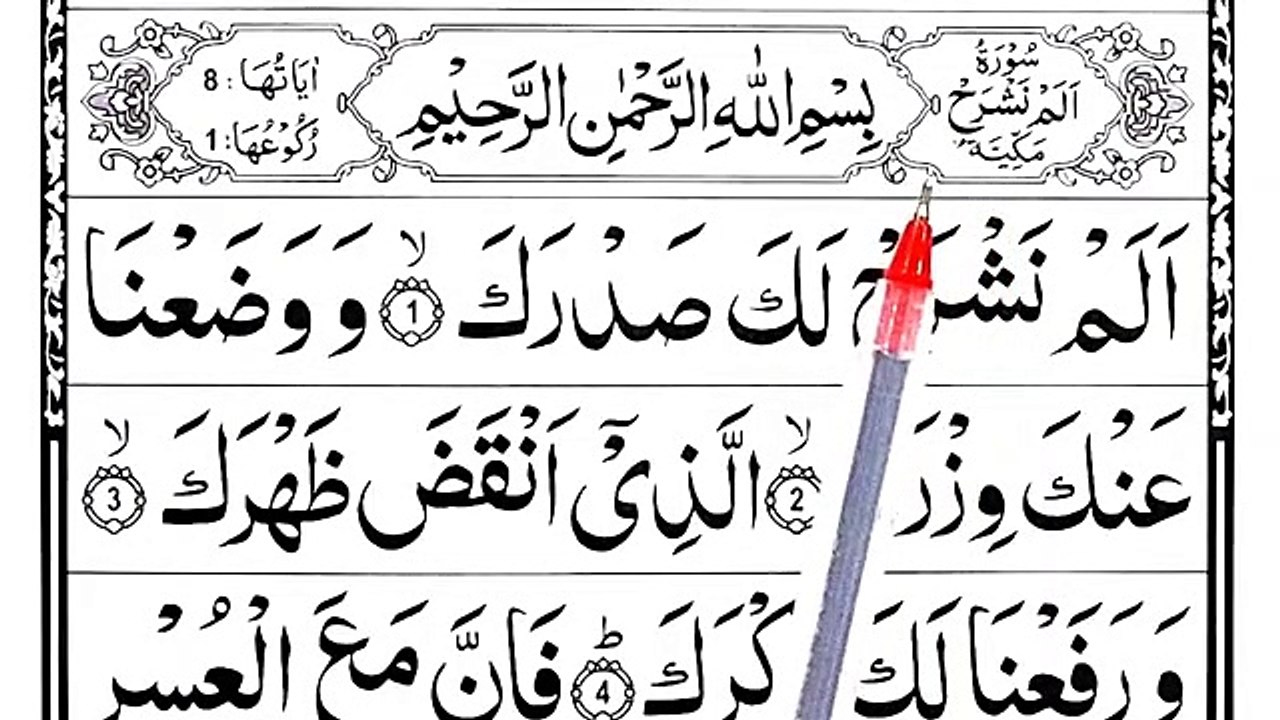 سُوْرَةُ
اَلَمْ نَشْرَحْ
مَكِّيَّةٌ
بِسْمِ اللّٰهِ الرَّحْمٰنِ الرَّحِيْمِ
اٰيَاتُهَا : 8
رُكُوْعُهَا : 1
اَلَمْ نَشْرَحْ لَكَ صَدْرَكَ ۙ 1 وَ وَضَعْنَا
عَنْكَ وِزْرَ ۙ 2 الَّذِىْٓ اَنْقَضَ ظَهْرَكَ ۙ 3
وَ رَفَعْنَا لَكَ كْرَكَ ؕ 4 فَاِنَّ مَعَ الْعُسْرِ